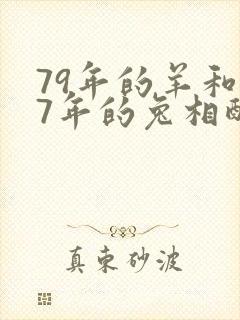 79年的羊和
7年的兔相配
真束砂波